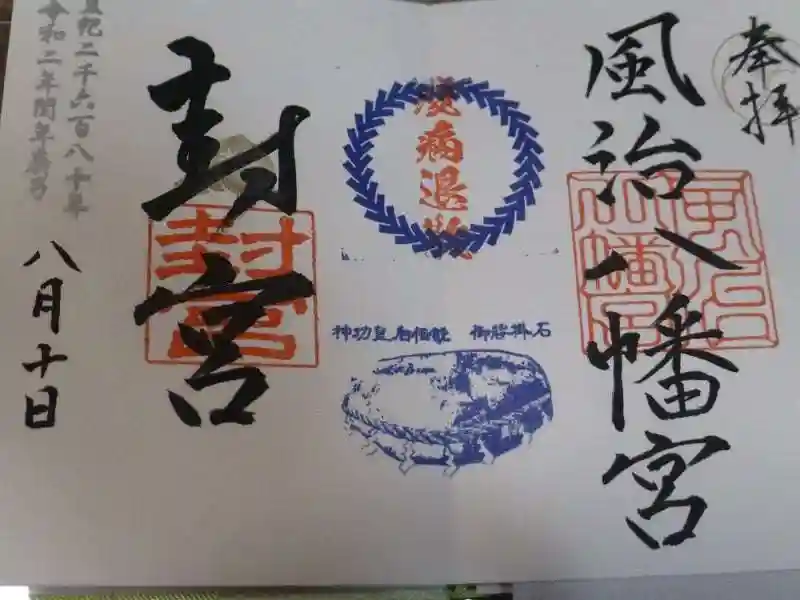 奉拝
風治八幡宮
風治八幡宮
疫病退散
神功皇后伝説 御腰掛石
封宮
封宮
皇紀二千六百八十年
令和二年閏年
八月十日